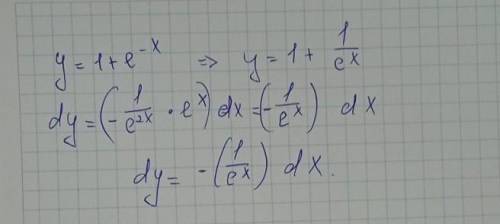 y = 1 + e^{-x} => y = 1 + \frac{1}{e^x}
dy = (-\frac{1}{e^{2x}} \cdot e^x) dx = (-\frac{1}{e^x}) dx
dy = -(\frac{1}{e^x}) dx.